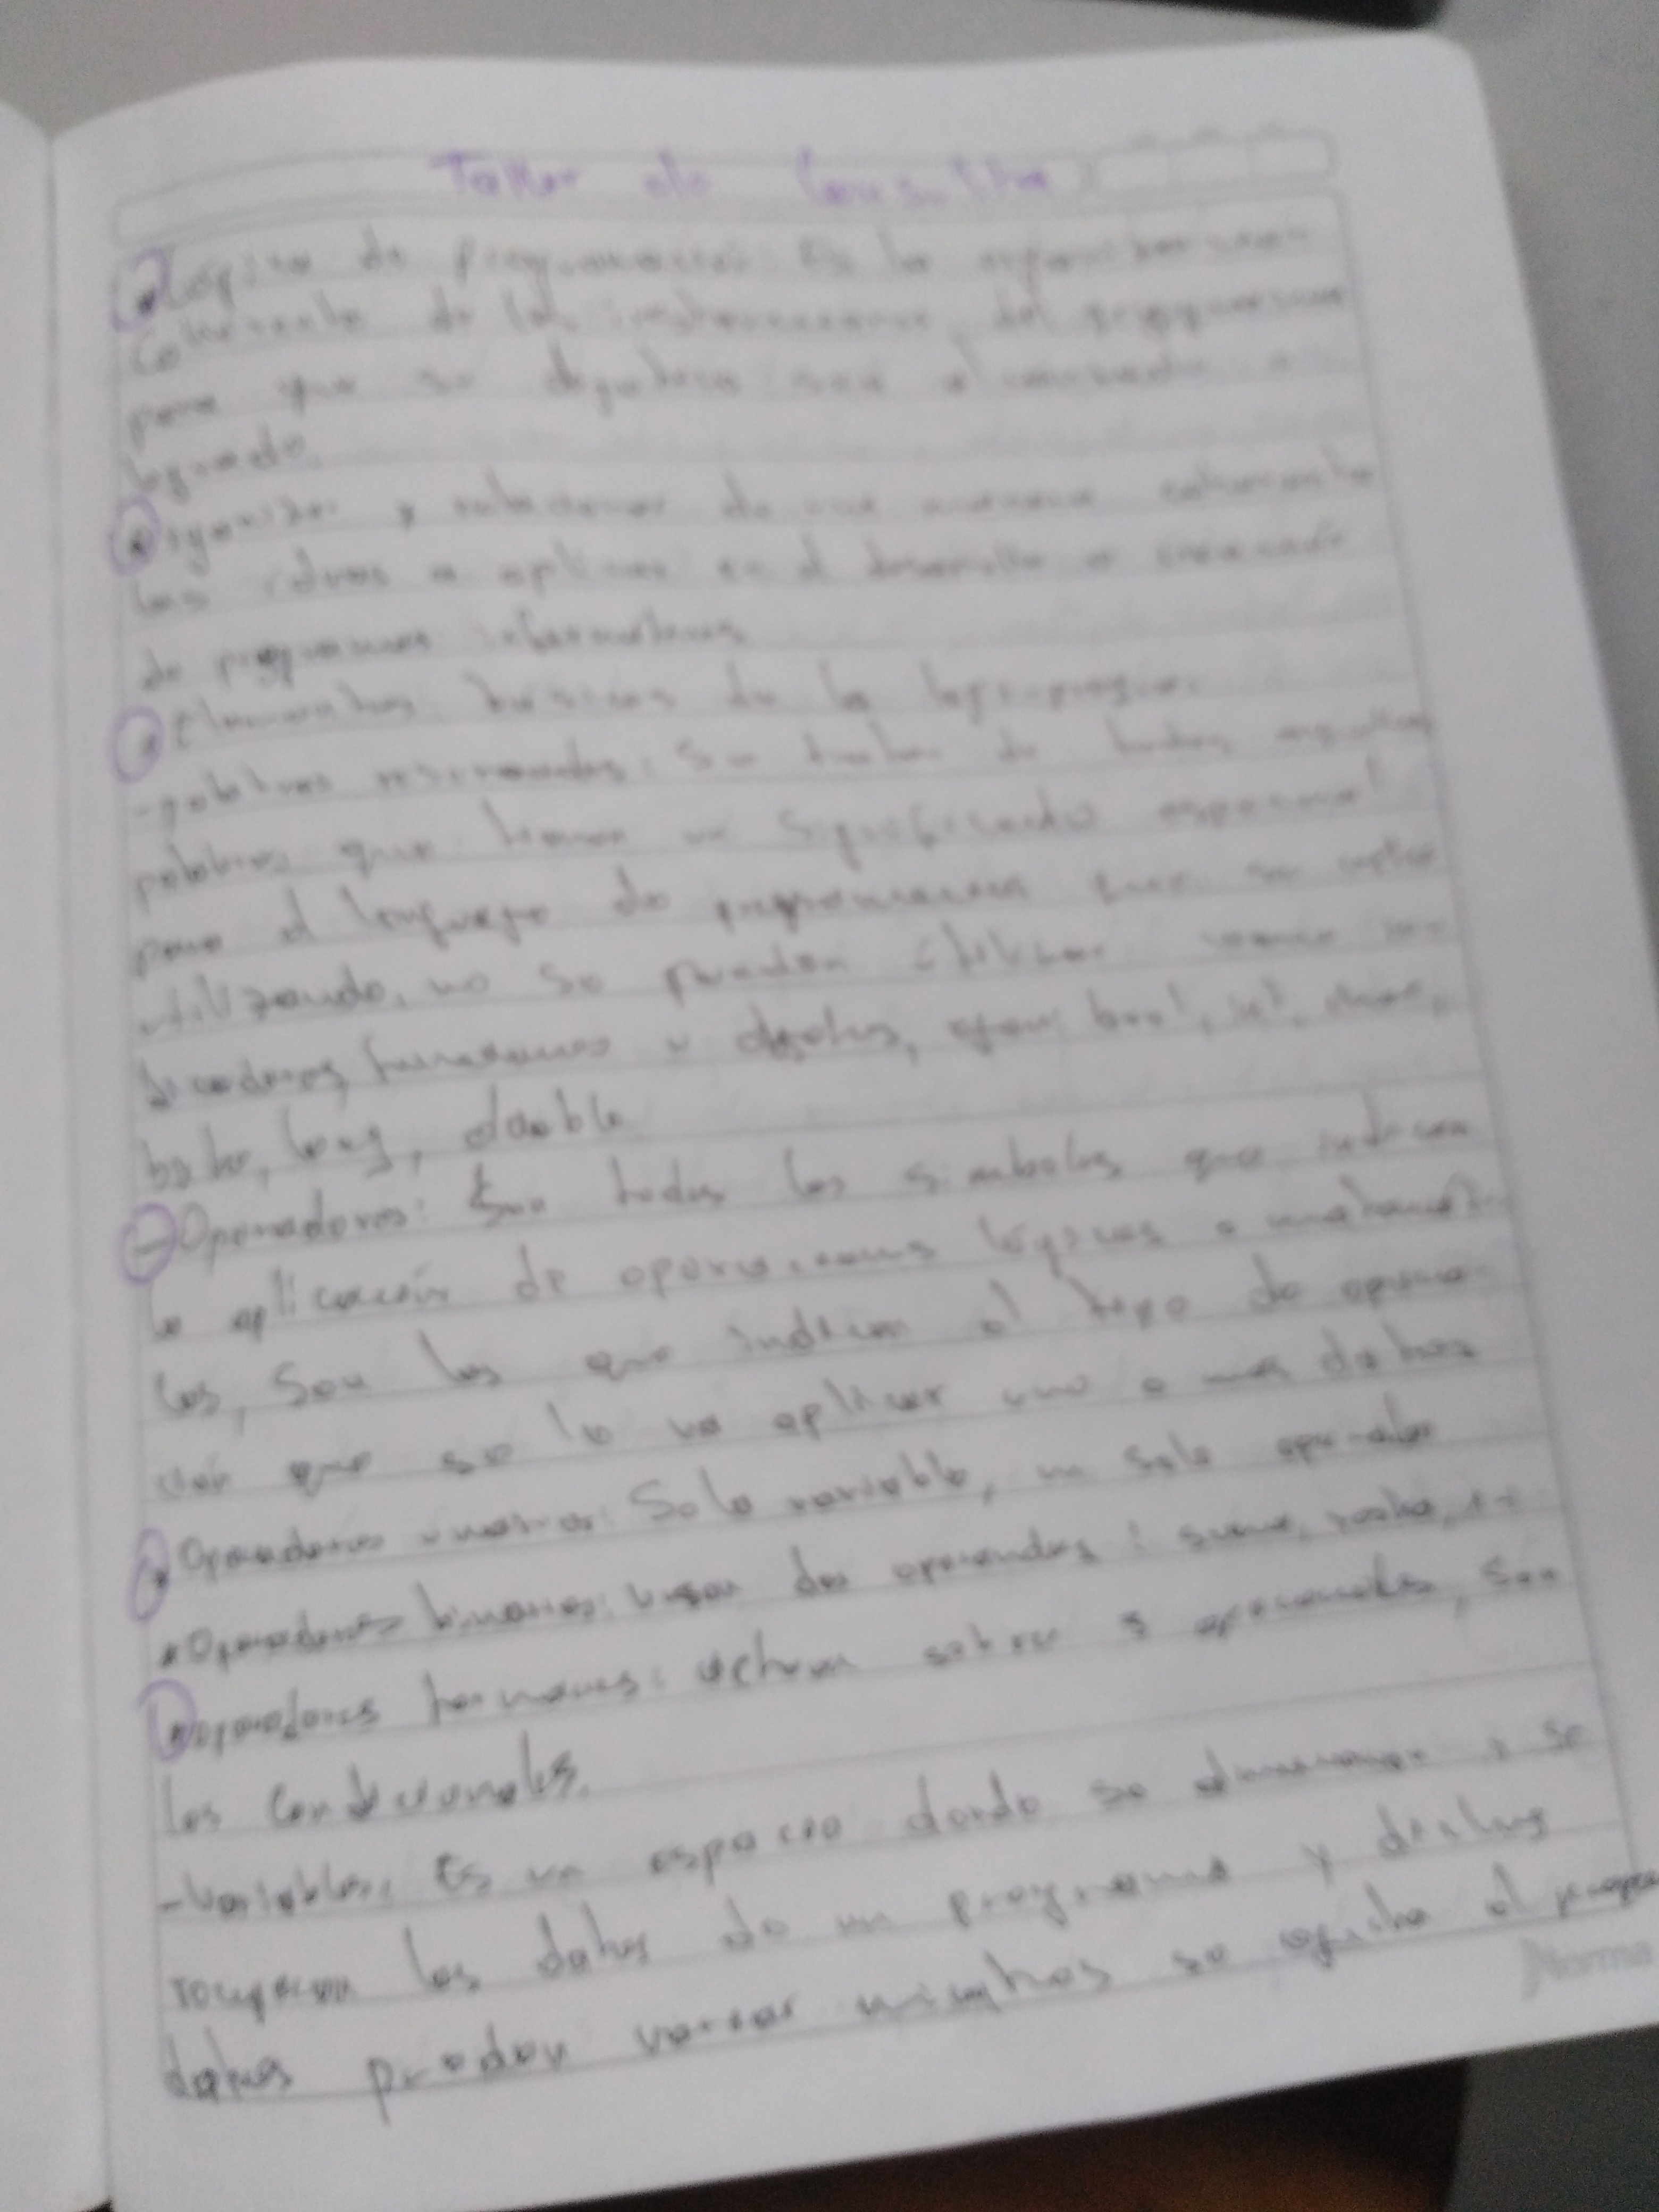 Taller de Consulta
Lógica de programación: Es la organización
Coherente de las instrucciones del programa
para que su
logrado.
Organizar y relacionar de una manera coherente
las ideas a aplicar en el desarrollo o creación
de programas informáticos
Elementos básicos de la logi-progra.
-palabras reservadas: Se tratan de todas aquellas
palabras que tienen un significado especial
para el lenguaje de programación que se esta
utilizando, no se pueden utilizar como
funciones u objetos, ejem: bool, int, char,
byte, long, double
-Operadores: Son todos los simbolos que indican
la aplicación de operaciones lógicas o
Son los que indican el tipo de opera-
ción que se le va aplicar uno o mas datos
Operadores unarios: Solo variable, un solo operando
Operadores binarios: usan dos operandos: suma, resta,
Operadores ternarios: actuan sobre 3 operandos, son
los condicionales.
-Variables: Es un espacio donde se almacenan y se
recuperan los datos de un programa y dichos
datos pueden variar mientras se ejecuta el
Norma